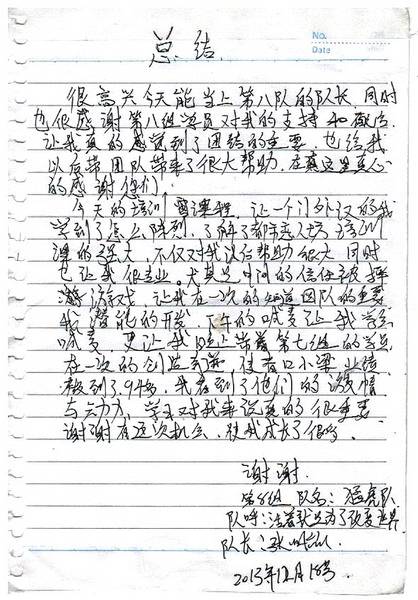 No.
Date
总结
很高兴今天能当上第八队的队长,同时
也很感谢第八组学员对我的支持和微信,
让我真的感觉到了团结的重要,也给我
以后带团队带来了很大帮助,在真这里真心
的感谢你们!
今天的培训 课程,让一个门外汉的我
学到了怎么阵列,了解了都 培训
课的强大,不仅对我没信帮助很大,同时
也让我很专业。尤其是中间的信任被摔
游戏,让我在一次的知道团队的重要
我潜能的开发,下午的喊麦让我学会
喊麦,更让我 第七组的学员
在一次的创造奇迹,
破到了3.94秒,我看到了他们的激情
与 力,学习对我来说真的很重要
谢谢有这次机会,使我成长了很多。
谢谢.
第8组 队名:猛虎队
队呼:活着就是为了改变世界
队长:
2013年12月18号